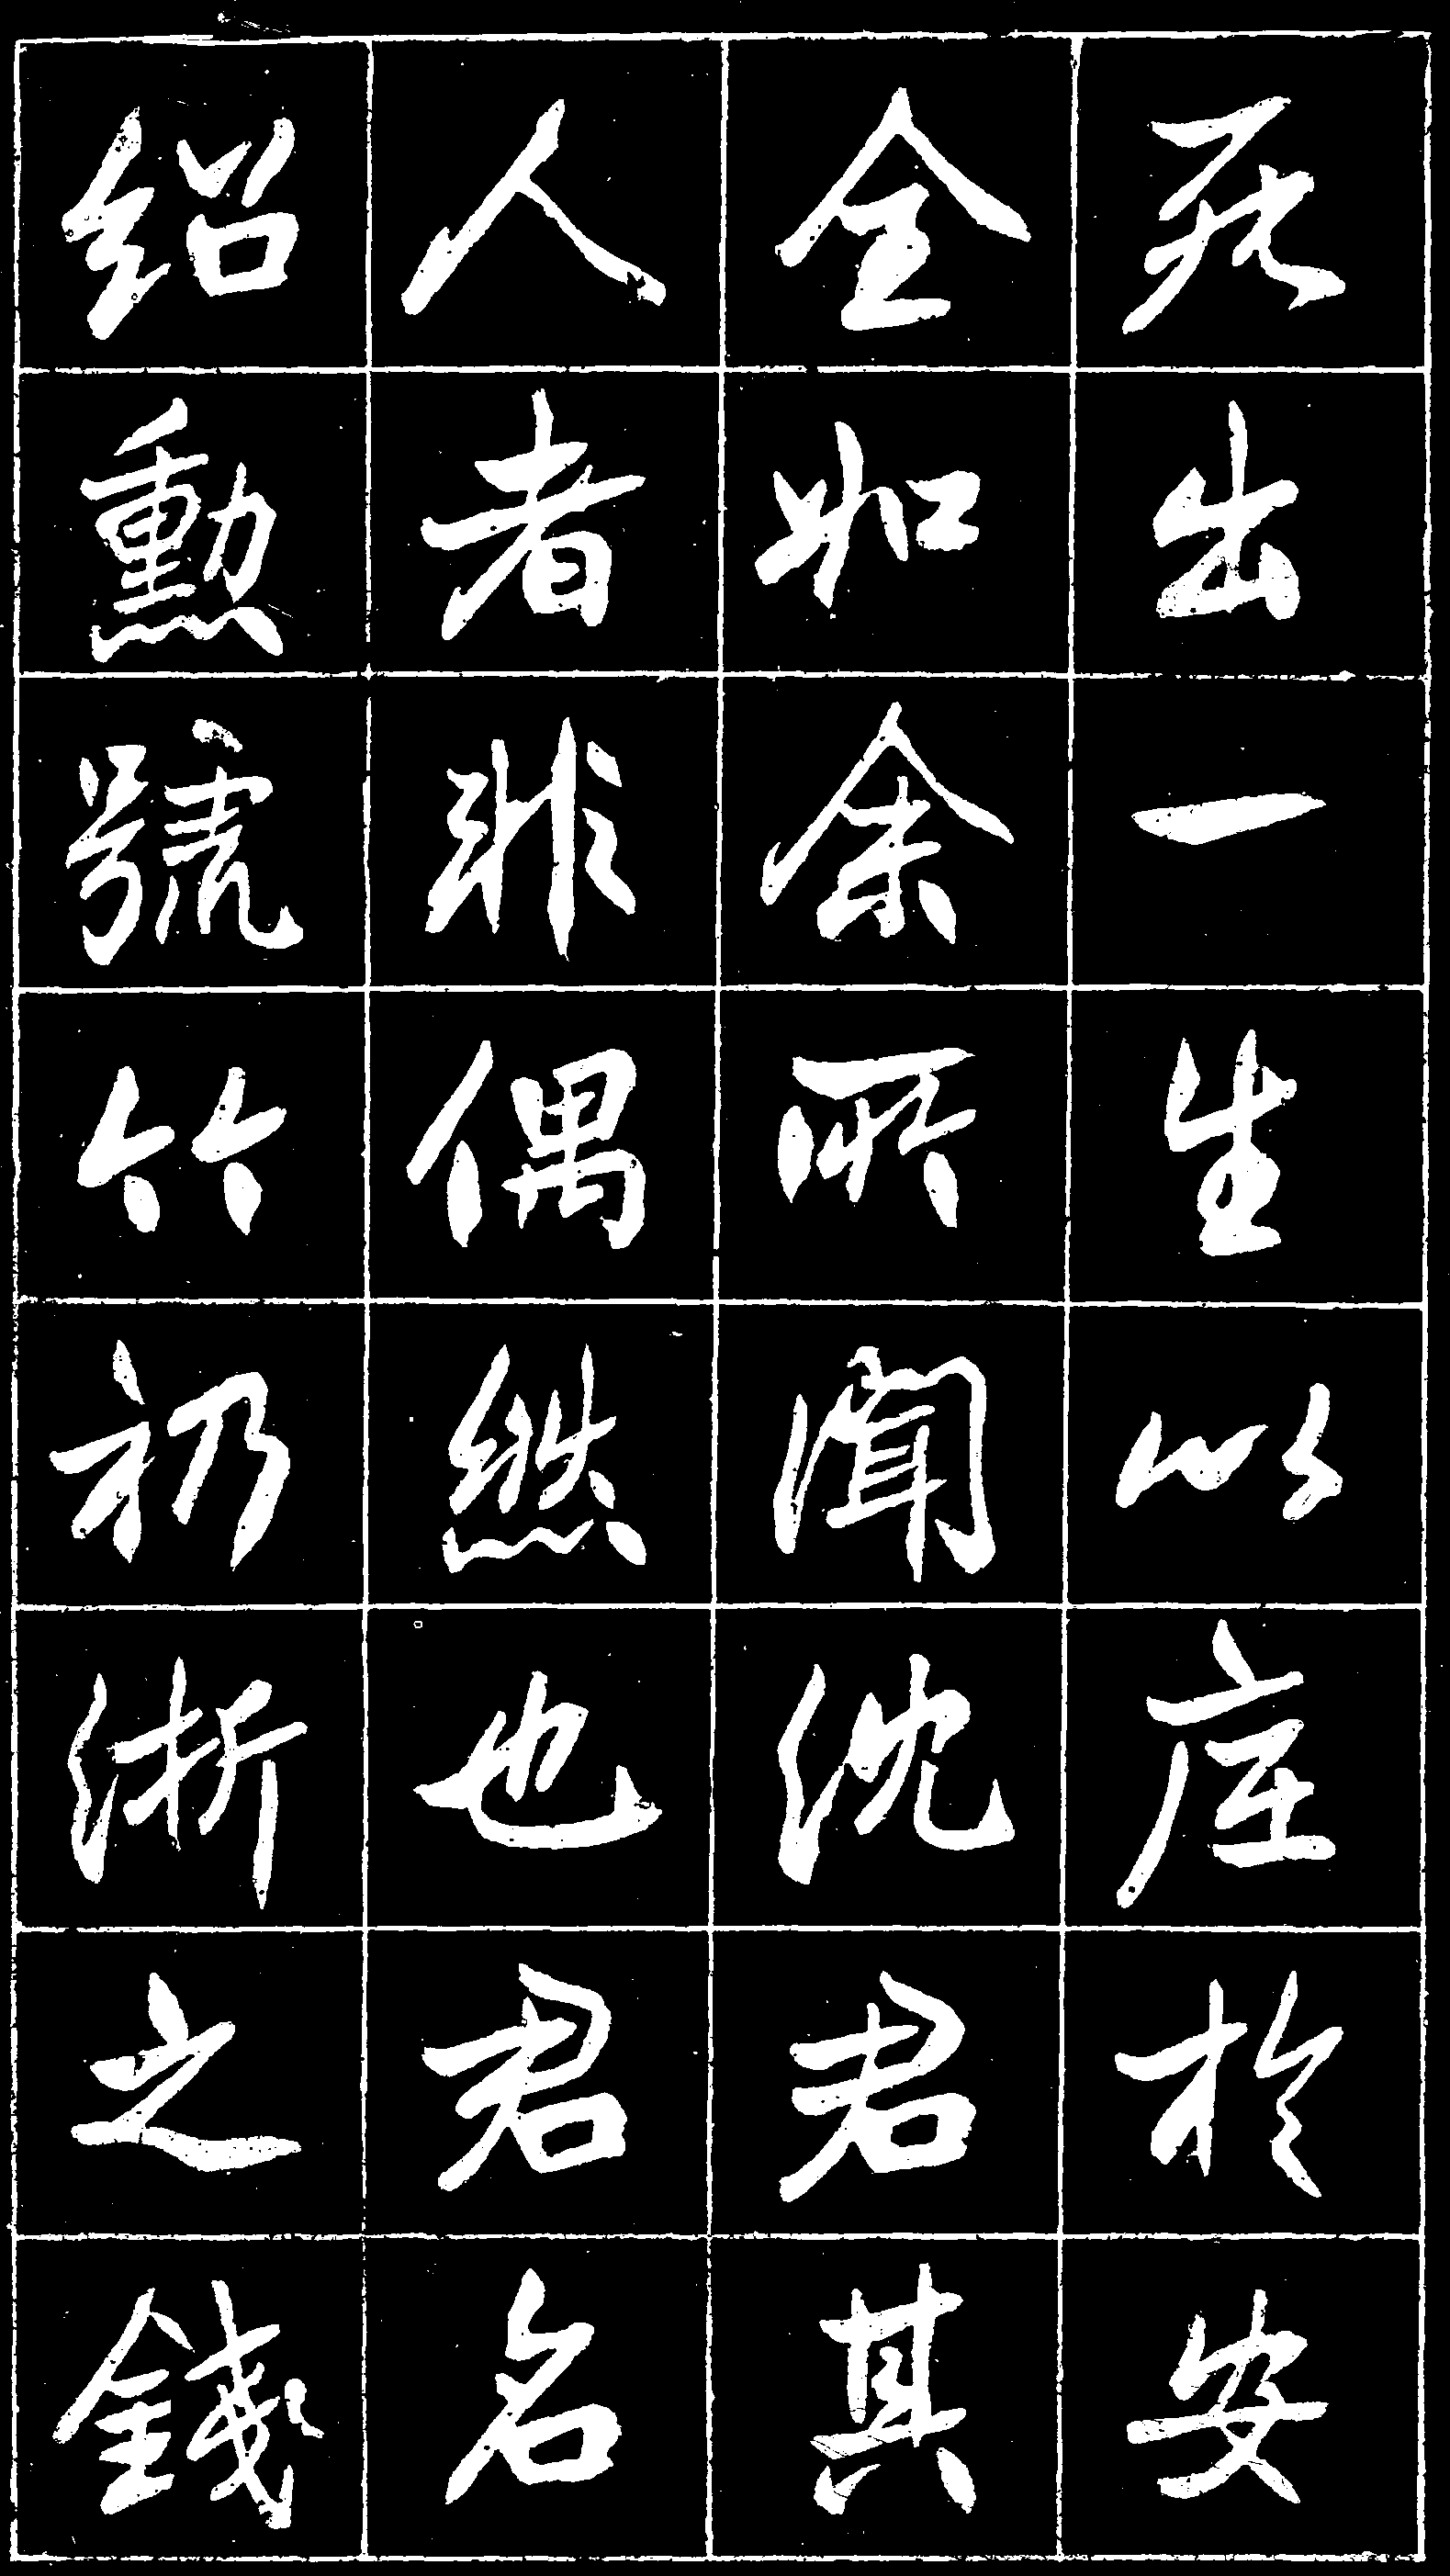 死出一生以底於安
全如余所聞沈君其
人者非偶然也君名
紹勳號竹礽浙之錢